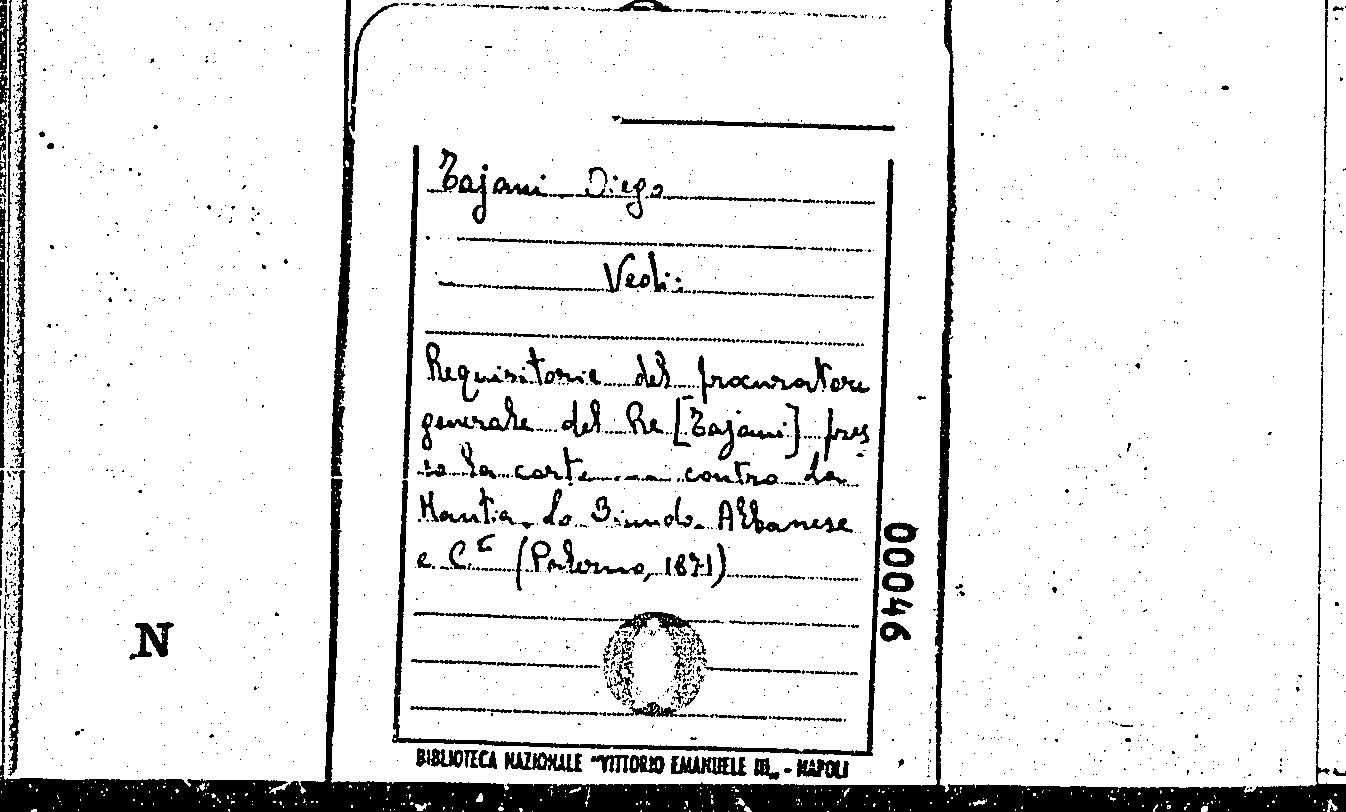 Tajani Diego
Vedi:
Requisitorie del procuratore
generale del Re [Tajani] pres
so la corte ... contro La
Mantia, Lo Biundo, Albanese
e C.i (Palermo, 1871)
00046
N
BIBLIOTECA NAZIONALE "VITTORIO EMANUELE III" - NAPOLI